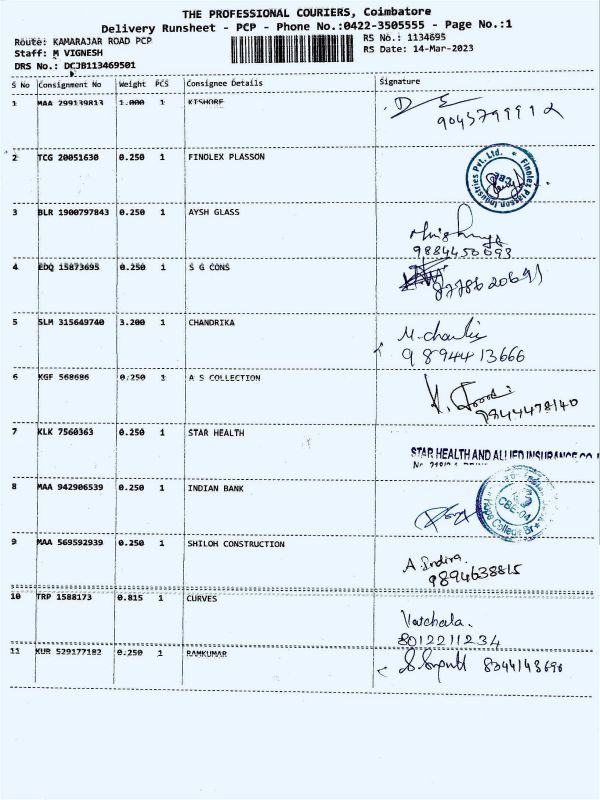 THE PROFESSIONAL COURIERS, Coimbatore
Delivery Runsheet - PCP - Phone No.:0422-3505555 - Page No.:1
Route: KAMARAJAR ROAD PCP
RS No.: 1134695
Staff: M VIGNESH
RS Date: 14-Mar-2023
DRS No.: DCJB113469501
S No Consignment No Weight PCS Consignee Details Signature
1 MAA 299139813 1.000 1 KISHORE
2 TCG 20051630 0.250 1 FINOLEX PLASSON
Finolex Plasson Industries Pvt. Ltd.
3 BLR 1900797843 0.250 1 AYSH GLASS
4 EDQ 15873695 0.250 1 S G CONS
5 SLM 315649740 3.200 1 CHANDRIKA
9894413666
6 KGF 568686 0.250 1 A S COLLECTION
7 KLK 7560363 0.250 1 STAR HEALTH
STAR HEALTH AND ALLIED INSURANCE CO
8 MAA 942906539 0.250 1 INDIAN BANK
CBE-04
9 MAA 569592939 0.250 1 SHILOH CONSTRUCTION
A. Indira
9894638815
10 TRP 1588173 0.815 1 CURVES
Vatchala.
8012211234
11 KUR 529177182 0.250 1 RAMKUMAR